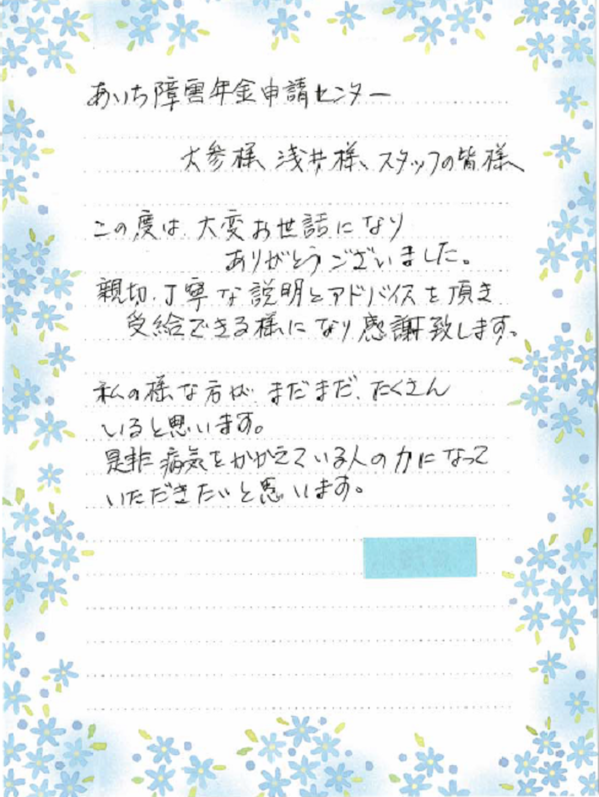 あいち障害年金申請センター
大参様、浅井様、スタッフの皆様
この度は、大変お世話になり
ありがとうございました。
親切、丁寧な説明とアドバイスを頂き
受給できる様になり感謝致します。
私の様な方が、まだまだ、たくさん
いると思います。
是非病気をかかえている人の力になって
いただきたいと思います。